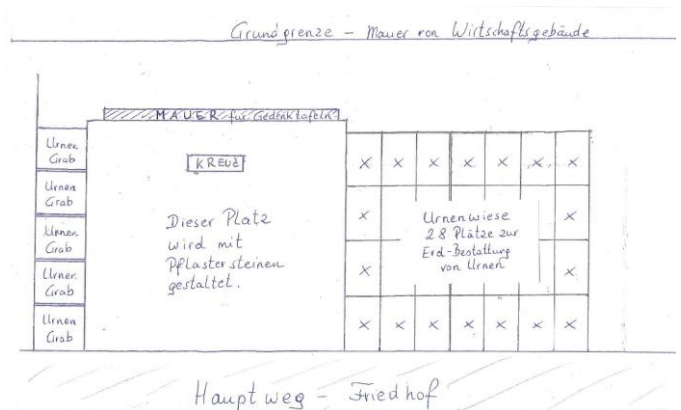 Grundgrenze – Mauer von Wirtschaftsgebäude
MAUER für Gedenktafeln
Urnen
Grab
Urnen
Grab
Urnen
Grab
Urnen
Grab
Urnen
Grab
KREUZ
Dieser Platz
wird mit
Pflastersteinen
gestaltet.
x x x x x x x
x x
Urnenwiese
28 Plätze zur
Erd-Bestattung
von Urnen
x x
x x x x x x x
Hauptweg – Friedhof